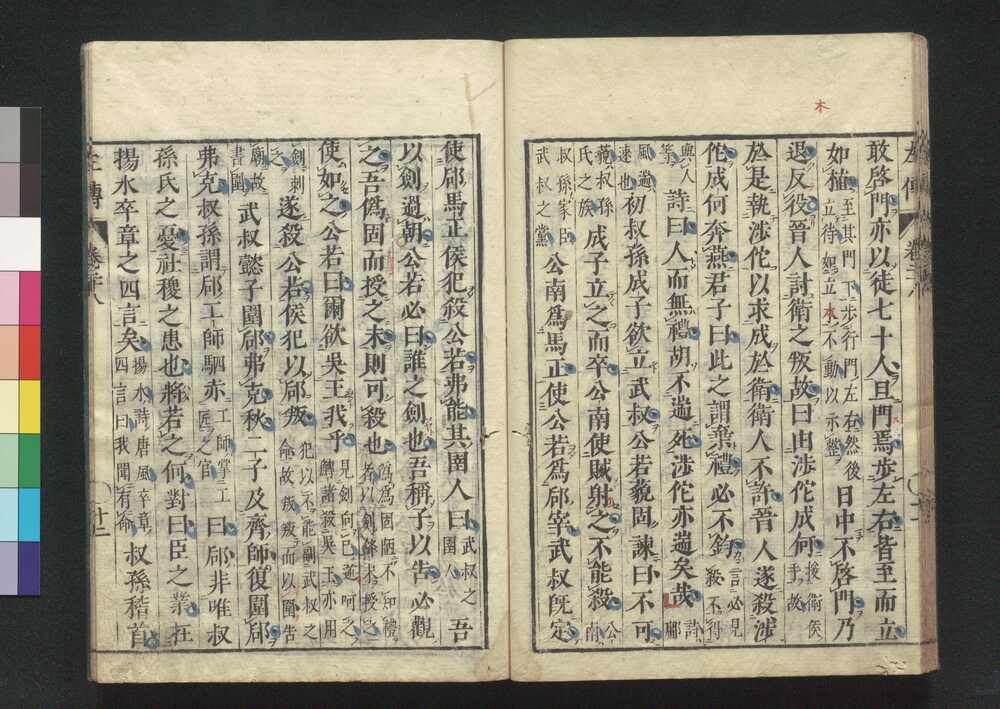 木
左傳 卷廿八
敢啓門亦以徒七十人旦門焉歩左右皆至而立
如植至其門下歩行門左右然後立待如立木不動以示整日中不啓門乃
退反役晉人討衛之叛故曰由涉佗成何捘衛侯手故
於是執涉佗以求成於衛衛人不許晉人遂殺涉
佗成何奔燕君子曰此之謂棄禮必不鈞言必見殺不得
與人等詩曰人而無禮胡不遄死涉佗亦遄矣哉詩鄘
風遄速也初叔孫成子欲立武叔公若藐固諫曰不可公若
藐叔孫氏之族成子立之而卒公南使賊射之不能殺公南
叔孫家臣武叔之黨公南爲馬正使公若爲郈宰武叔既定
使郈馬正侯犯殺公若弗能其圉人曰武叔之圉人吾
以劍過朝公若必曰誰之劍也吾稱子以告必觀
之吾僞固而授之末則可殺也僞爲固陋不知禮者以劍鋒末授之
使如之公若曰爾欲吳王我乎見劍向已逆呵之鱄諸殺吳王亦用
劍刺之遂殺公若侯犯以郈叛犯以不能副武叔之命故叛叛而以圍告
廟故書圍武叔懿子圍郈弗克秋二子及齊師復圍郈
弗克叔孫謂郈工師駟赤工師掌工匠之官曰郈非唯叔
孫氏之憂社稷之患也將若之何對曰臣之業在
揚水卒章之四言矣揚水詩唐風卒章四言曰我聞有命叔孫稽首
左傳 卷廿八 廿二